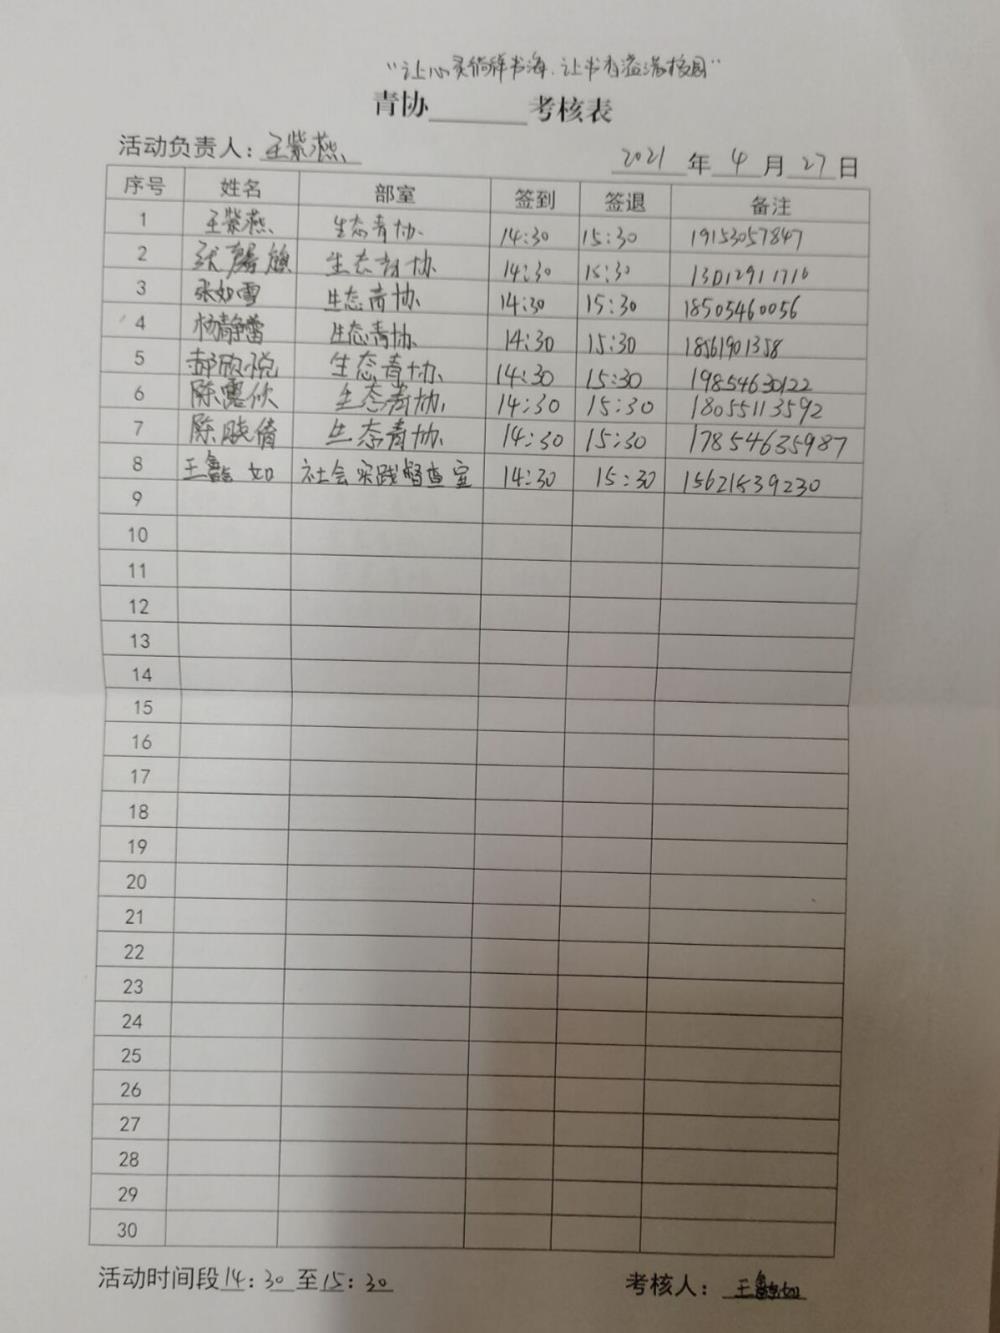 “让心灵徜徉书海，让书香溢满校园”
青协______考核表
活动负责人：王紫燕 2021年4月27日
序号 姓名 部室 签到 签退 备注
1 王紫燕 生态青协 14:30 15:30 19153057847
2 生态青协 14:30 15:30 13012911710
3 张如雪 生态青协 14:30 15:30 18505460056
4 杨静蕾 生态青协 14:30 15:30 18561901358
5 郝欣悦 生态青协 14:30 15:30 19854630122
6 陈 生态青协 14:30 15:30 18055113592
7 陈晓倩 生态青协 14:30 15:30 17854635987
8 王 如 社会实践督查室 14:30 15:30 15621539230
9
10
11
12
13
14
15
16
17
18
19
20
21
22
23
24
25
26
27
28
29
30
活动时间段14：30至15：30 考核人：王 如